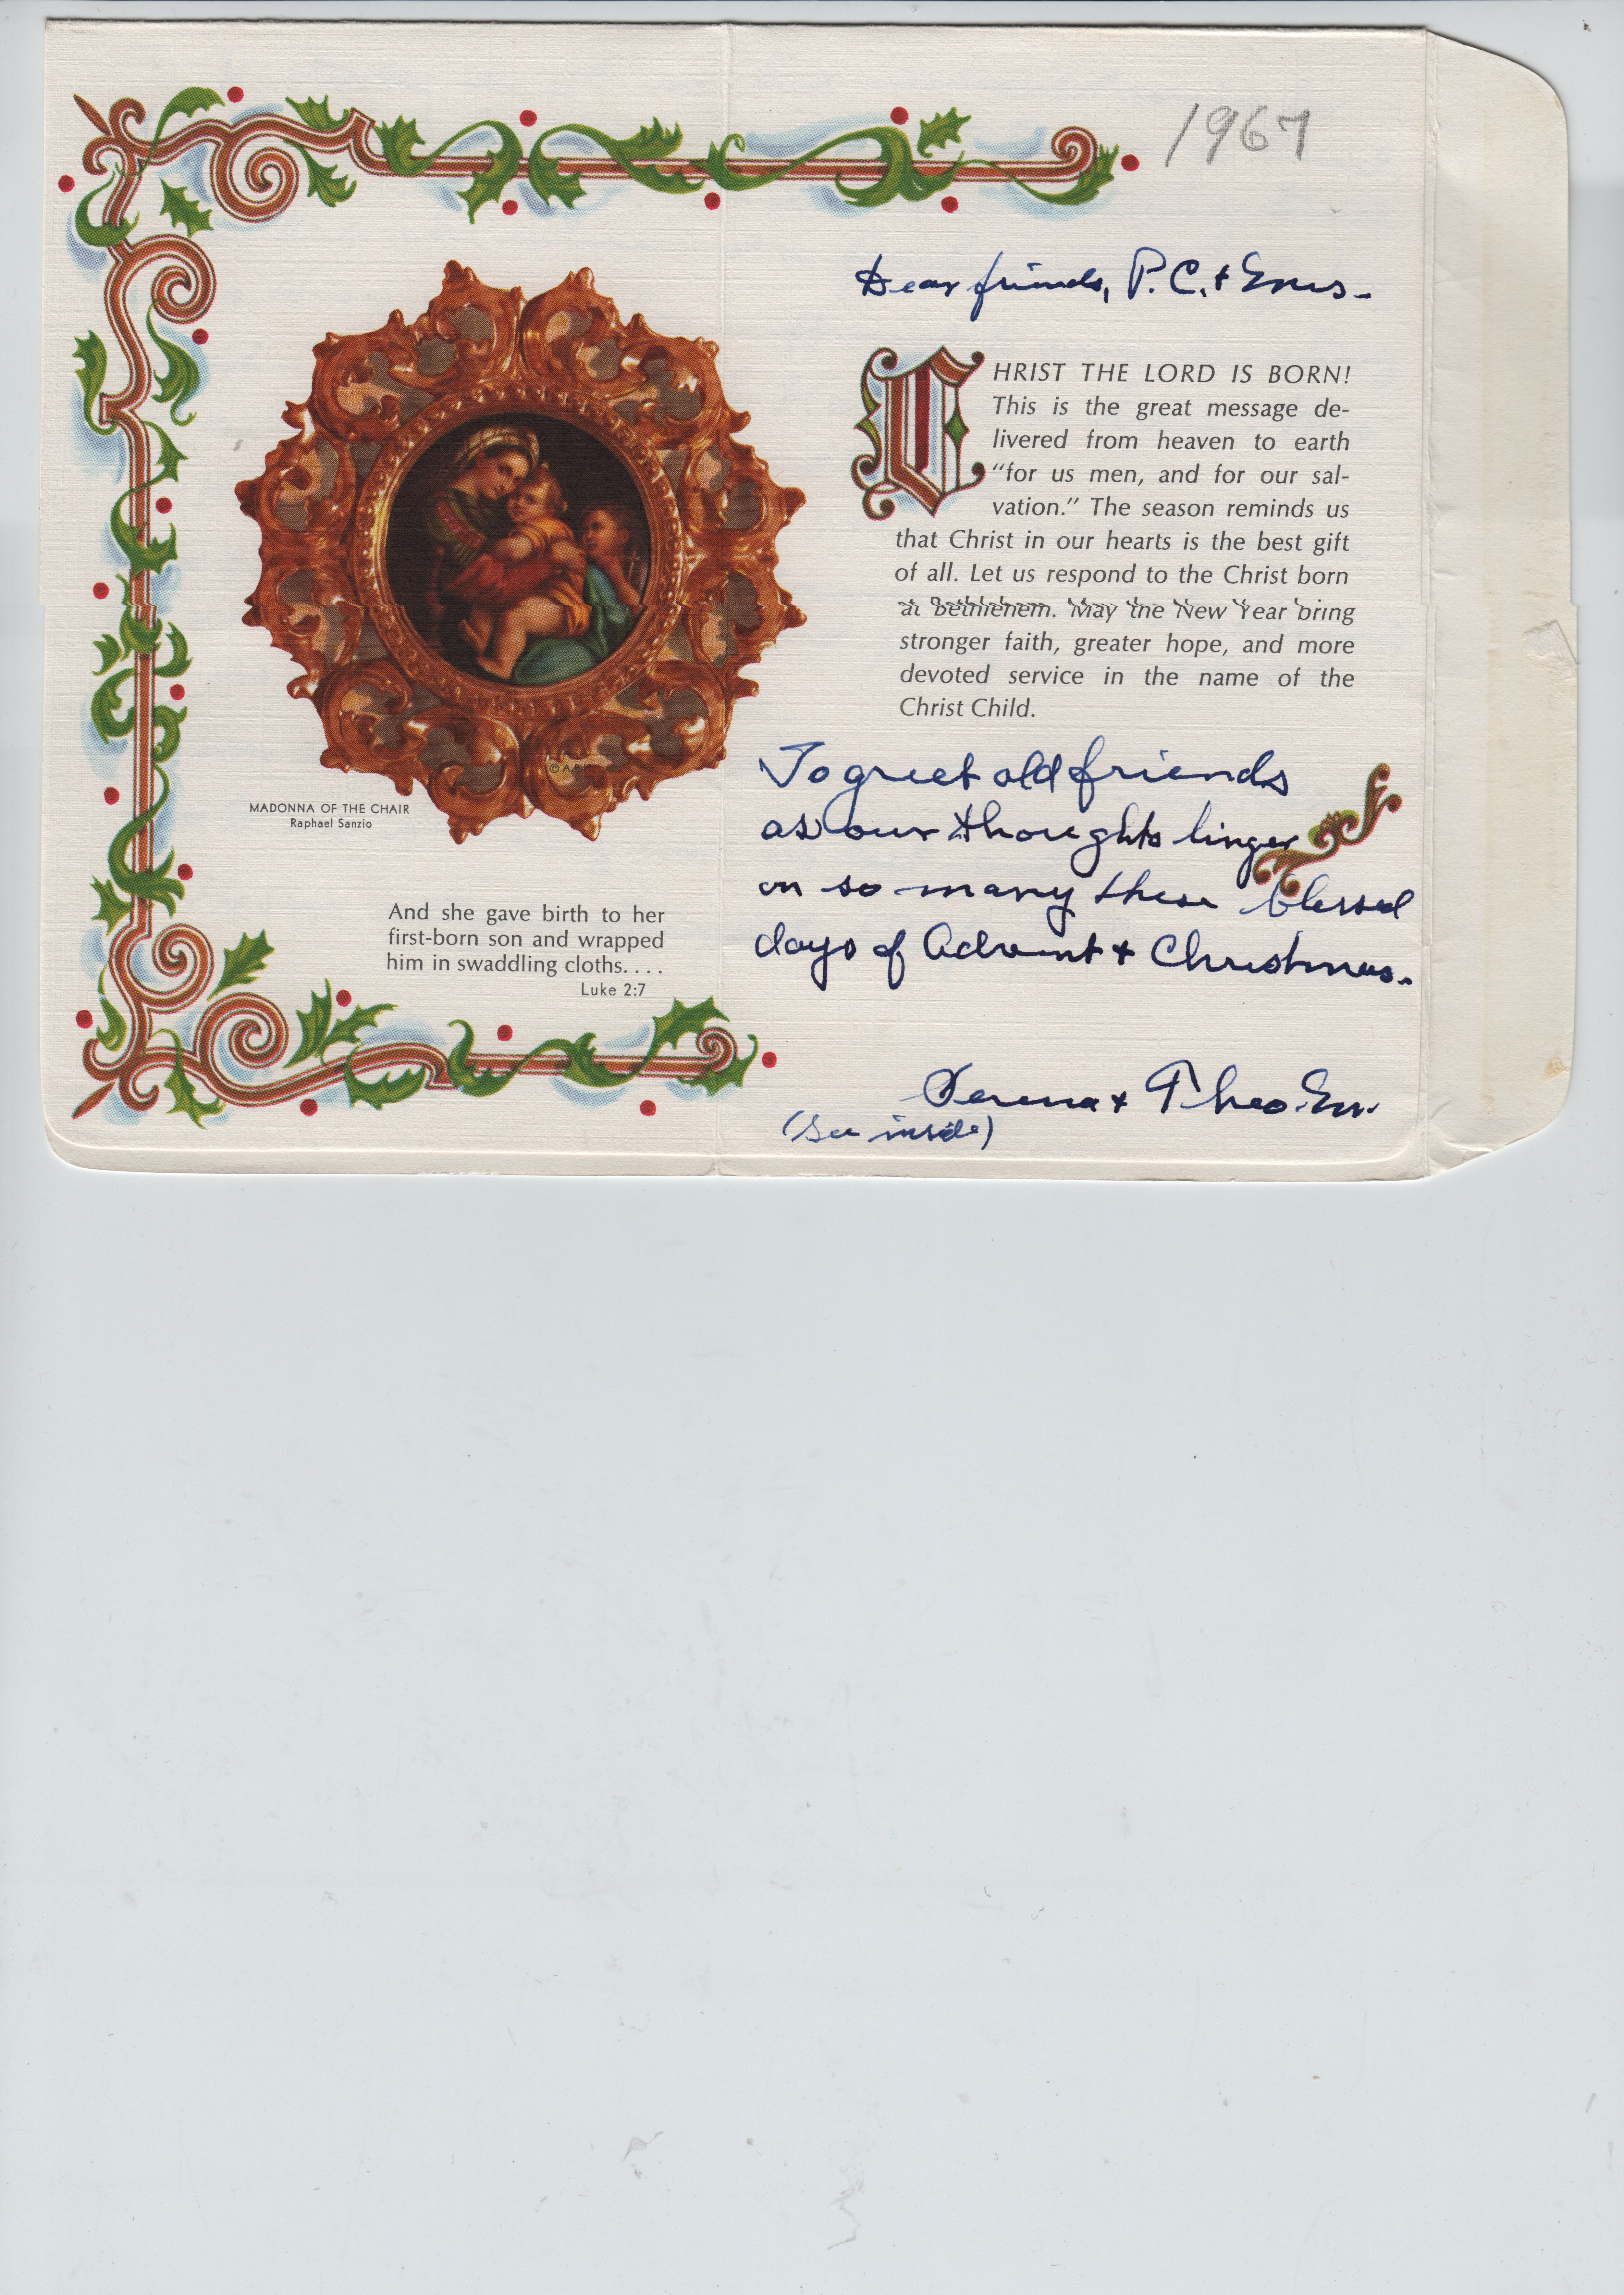 1967
Dear friends, P. C. +
CHRIST THE LORD IS BORN!
This is the great message de-
livered from heaven to earth
“for us men, and for our sal-
vation.” The season reminds us
that Christ in our hearts is the best gift
of all. Let us respond to the Christ born
at Bethlehem. May the New Year bring
stronger faith, greater hope, and more
devoted service in the name of the
Christ Child.
©
MADONNA OF THE CHAIR
Raphael Sanzio
And she gave birth to her
first-born son and wrapped
him in swaddling cloths. . . .
Luke 2:7
To greet old friends
as our thoughts linger
on so many these blessed
days of Advent + Christmas.
Serena + Theo.
(See inside)